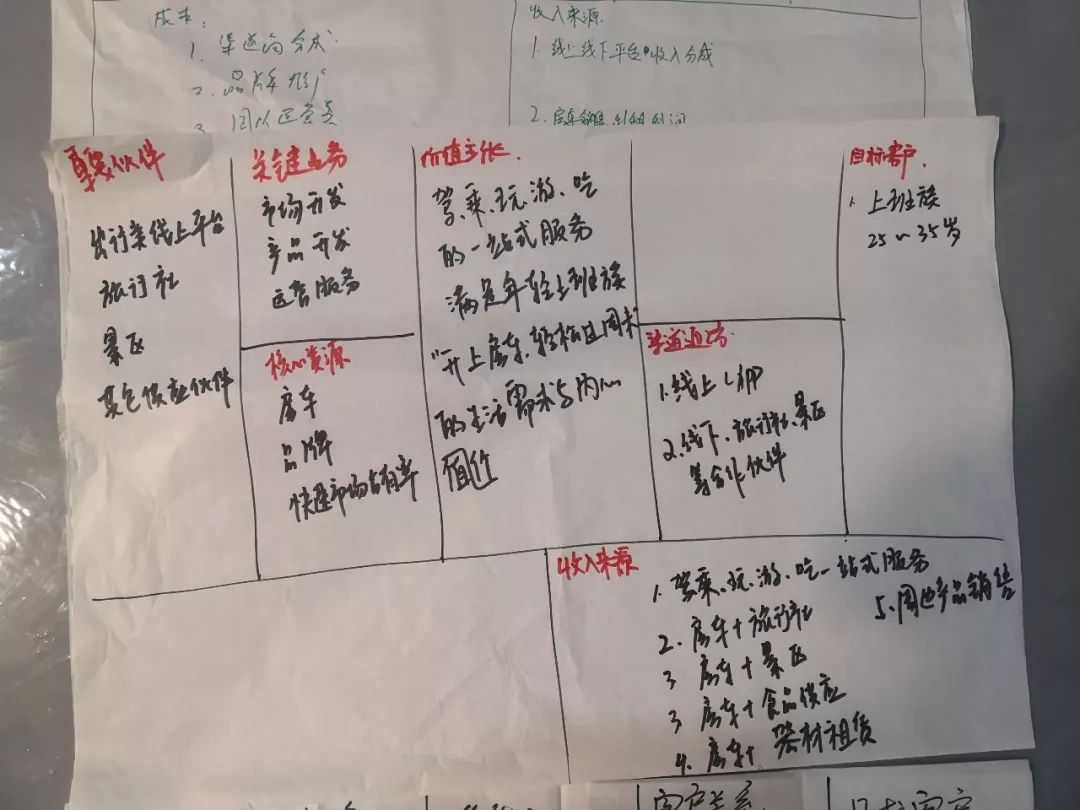 成本:
1. 渠道的分成
2. 品牌推广
3 团队运营费
收入来源
1. 线上线下平台收入分成
2. 房车销售、出租时间
重要伙伴
出行类线上平台
旅行社
景区
其它供应伙伴
关键业务
市场开发
产品开发
运营服务
核心资源
房车
品牌
快速市场占有率
价值主张
驾、乘、玩、游、吃
的一站式服务
满足年轻上班族
"开上房车、轻松过周末
的生活需求与内心
渠道通路
1.线上、APP
2.线下、旅行社、景区
等合作伙伴
目标客户
1. 上班族
25～35岁
收入来源
1. 驾乘、玩、游、吃一站式服务
2. 房车+旅行社
3 房车+景区
3 房车+食品供应
4. 房车+ 器材租赁
5. 周边产品销售
客户关系